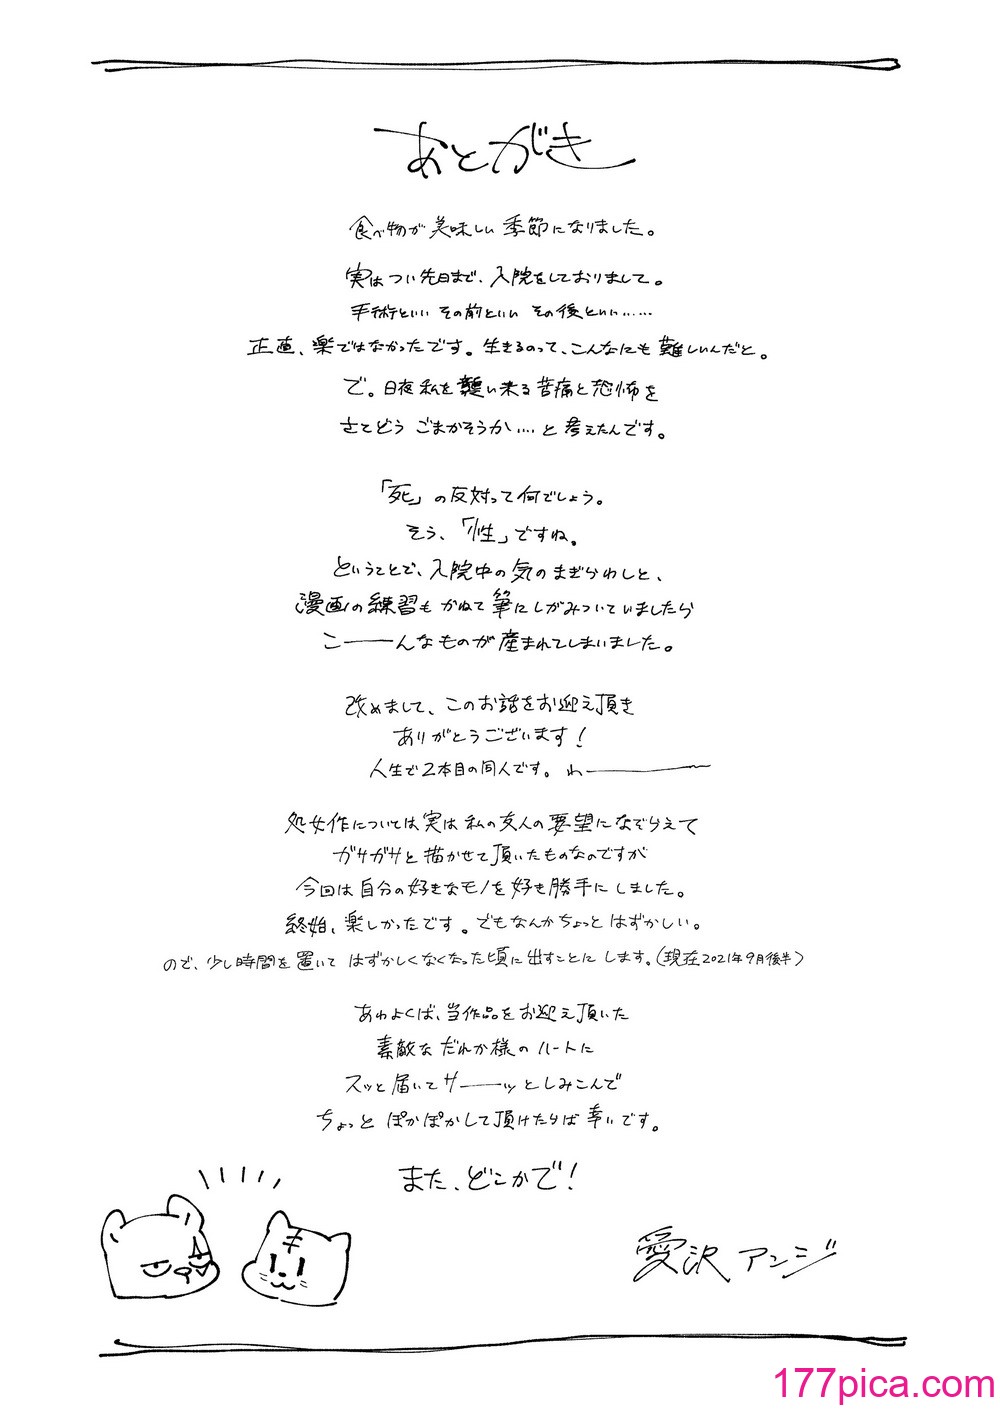 あとがき
食べ物が美味しい季節になりました。
実はつい先日まで、入院をしておりまして。
手術といい その前といい その後といい……
正直、楽ではなかったです。生きるのって、こんなにも難しいんだと。
で。日夜私を襲い来る苦痛と恐怖を
さてどう ごまかそうか…と考えたんです。
「死」の反対って何でしょう。
そう、「性」ですね。
ということで、入院中の気のまぎらわしと、
漫画の練習もかねて筆にしがみついていましたら
こーーんなものが産まれてしまいました。
改めまして、このお話をお迎え頂き
ありがとうございます!
人生で2本目の同人です。わーーーー
処女作については実は私の友人の要望になぞらえて
ガサガサと描かせて頂いたものなのですが
今回は自分の好きなモノを好き勝手にしました。
終始、楽しかったです。でもなんかちょっとはずかしい。
ので、少し時間を置いて はずかしくなくなった頃に出すことにします。(現在2021年9月後半)
あわよくば、当作品をお迎え頂いた
素敵なだれか様のハートに
スッと届いてサーーッとしみこんで
ちょっと ぽかぽかして頂けたりば幸いです。
また、どこかで!
愛沢アンジ
177pica.com